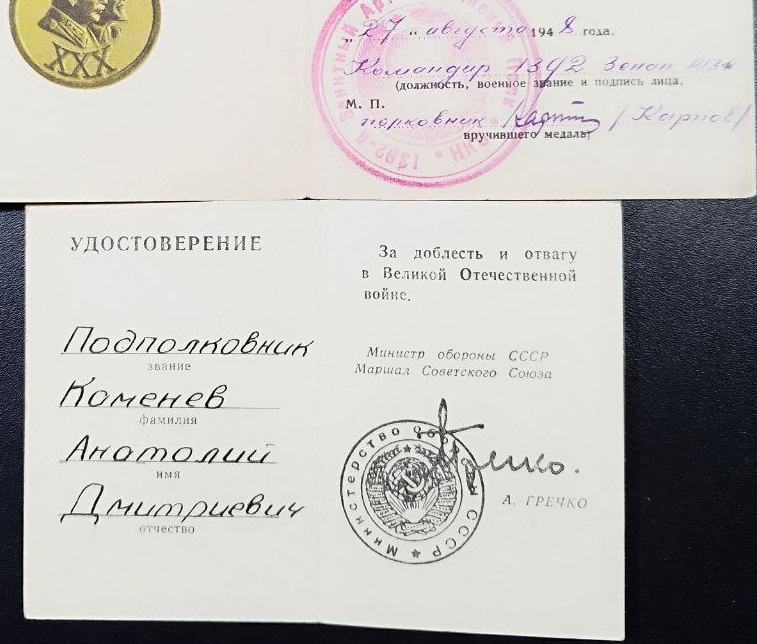 XXX
"27" августа 1948 года.
Командир 1392 Зенап
(должность, военное звание и подпись лица,
М. П.
полковник /Карпов/
вручившего медаль)
УДОСТОВЕРЕНИЕ
Подполковник
звание
Каменев
фамилия
Анатолий
имя
Дмитриевич
отчество
За доблесть и отвагу
в Великой Отечественной
войне.
Министр обороны СССР
Маршал Советского Союза
Министерство обороны СССР
Гречко.
А. ГРЕЧКО